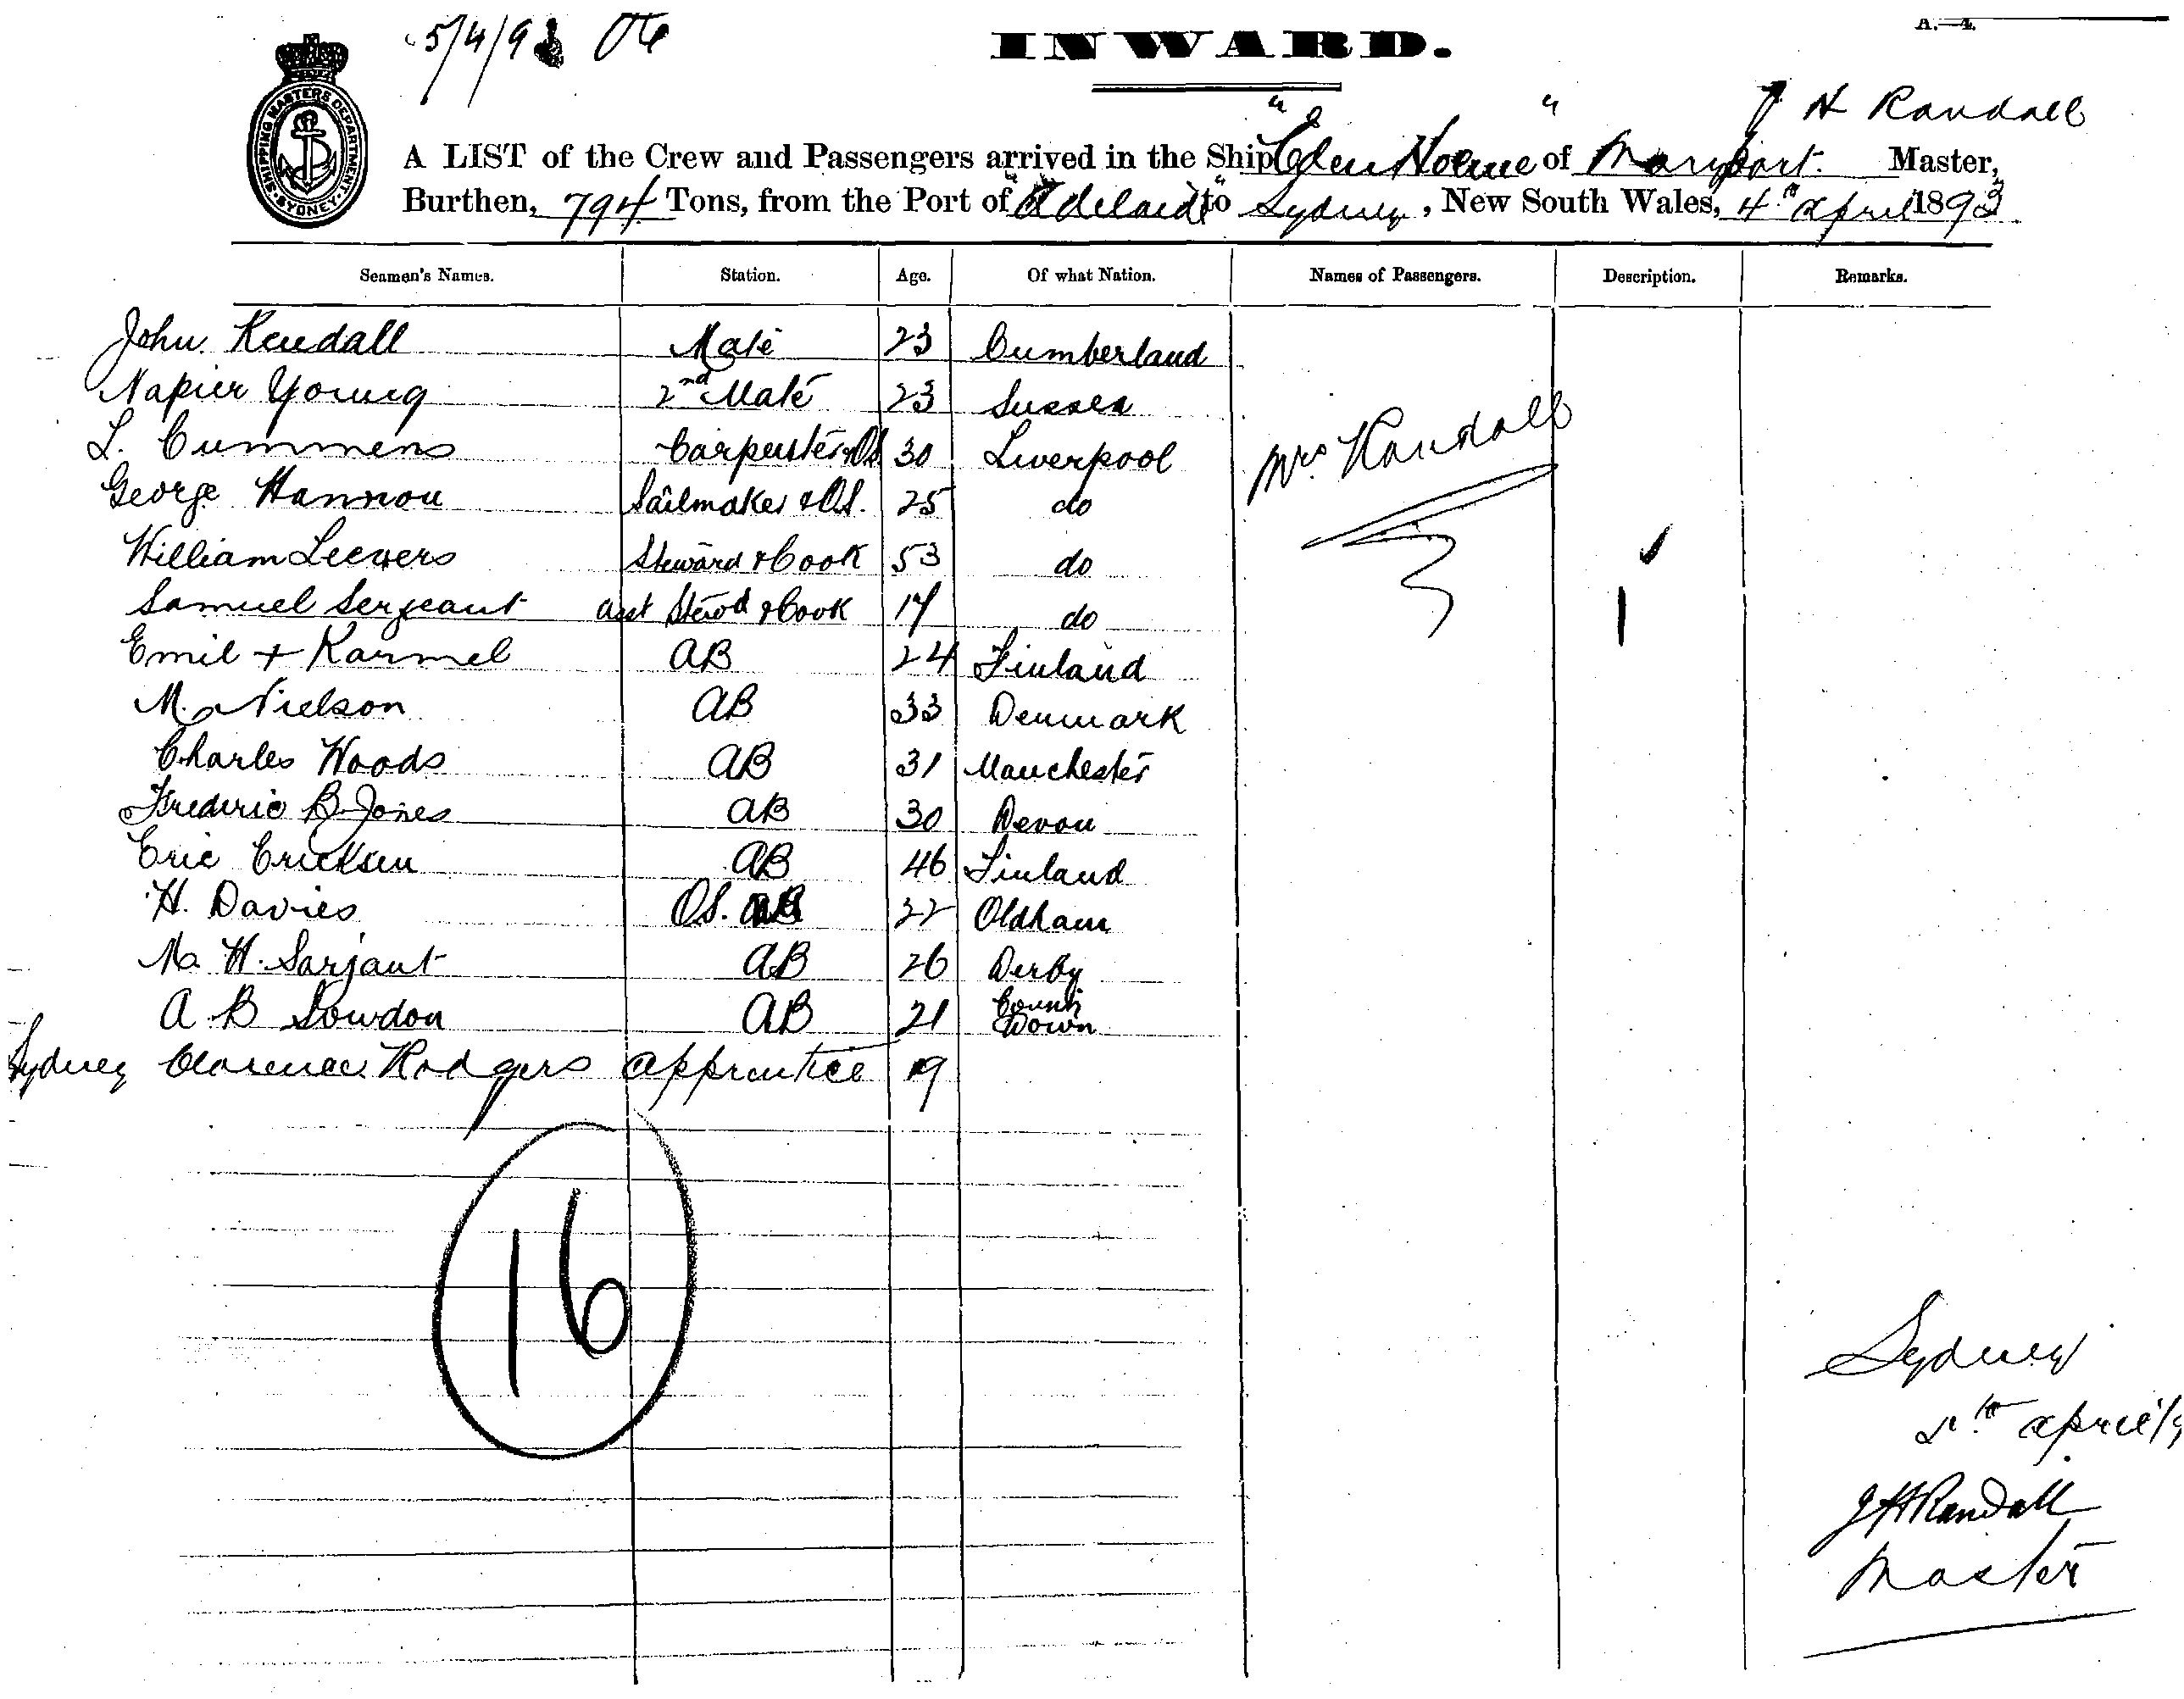 5/4/93
INWARD.
A.—4.
SHIPPING MASTERS DEPARTMENT
SYDNEY
J H Randall
A LIST of the Crew and Passengers arrived in the Ship "Eden Holme" of Maryport. Master,
Burthen, 794 Tons, from the Port of Adelaide to Sydney, New South Wales, 4th April 1893
Seamen's Names. Station. Age. Of what Nation. Names of Passengers. Description. Remarks.
John Kendall Mate 23 Cumberland
Napier Young 2nd Mate 23 Sussex
L. Cummens Carpenter 30 Liverpool Mrs Randall
George Hannou Sailmaker & OS. 25 do
William Leewers Steward & Cook 53 do
Samuel Serjeant Asst Stewd & Cook 17 do 1
Emil + Karmel AB 24 Finland
M. Nielson AB 33 Denmark
Charles Woods AB 31 Manchester
Frederic B Jones AB 30 Devon
Eric Ericksen AB 46 Finland
H. Davies OS. 22 Oldham
M. H. Sarjant AB 26 Derby
A B Sowdon AB 21 County Down
Sydney Clarence Rodgers Apprentice 19
16
Sydney
5th April
J H Randall
Master